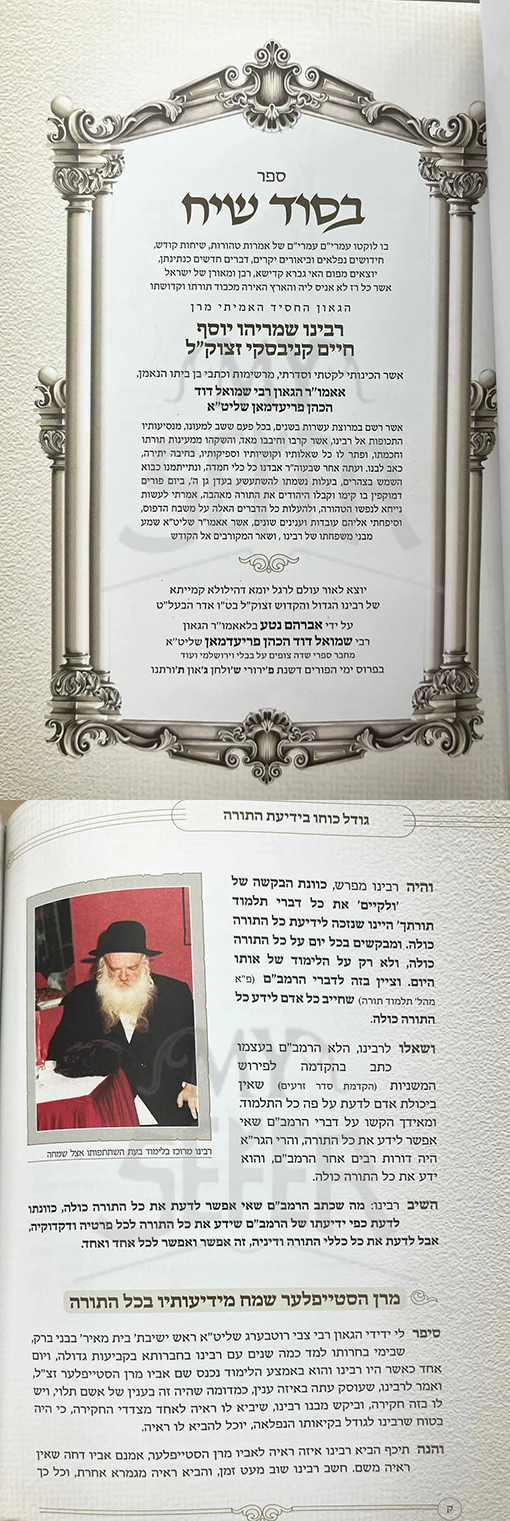 ספר
בסוד שיח
בו לוקטו עמרי"ם עמרי"ם של אמרות טהורות, שיחות קודש,
חידושים נפלאים וביאורים יקרים, דברים חדשים כנתינתן,
יוצאים מפום האי גברא קדישא, רבן ומאורן של ישראל
אשר כל רז לא אניס ליה והארץ האירה מכבוד תורתו וקדושתו
הגאון החסיד האמיתי מרן
רבינו שמריהו יוסף
חיים קניבסקי זצוק"ל
אשר הכינותי לקטתי וסדרתי, מרשימות וכתבי בן ביתו הנאמן,
אאמו"ר הגאון רבי שמואל דוד
הכהן פריעדמאן שליט"א
אשר רשם במרוצת עשרות בשנים, בכל פעם ששב למעונו, מנסיעותיו
התכופות אל רבינו, אשר קרבו וחיבבו מאד, והשקהו ממעינות תורתו
וחכמתו, ופתר לו כל שאלותיו וקושיותיו וספיקותיו, בחיבה יתירה,
כאב לבנו. ועתה אחר שבעוה"ר אבדנו כל כלי חמדה, ונתייתמנו כבוא
השמש בצהרים, בעלות נשמתו להשתעשע בעדן גן ה', ביום פורים
דמוקפין בו קימו וקבלו היהודים את התורה מאהבה, אמרתי לעשות
נייחא לנפשו הטהורה, ולהעלות כל הדברים האלה על משבח הדפוס,
וסיפחתי אליהם עובדות וענינים שונים, אשר אאמו"ר שליט"א שמע
מבני משפחתו של רבינו, ושאר המקורבים אל הקודש
יוצא לאור עולם לרגל יומא דהילולא קמייתא
של רבינו הגדול והקדוש זצוק"ל בט"ו אדר הבעל"ט
על ידי אברהם נטע בלאאמו"ר הגאון
רבי שמואל דוד הכהן פריעדמאן שליט"א
מחבר ספרי שדה צופים על בבלי וירושלמי ועוד
בפרוס ימי הפורים דשנת פ'ירורי ש'ולחן ג'און ת'ורתנו
גודל כוחו בידיעת התורה
והיה רבינו מפרש, כוונת הבקשה של
'ולקיים' את כל דברי תלמוד
תורתך' היינו שנזכה לידיעת כל התורה
כולה. ומבקשים בכל יום על כל התורה
כולה, ולא רק על הלימוד של אותו
היום. וציין בזה לדברי הרמב"ם (פ"א
מהל' תלמוד תורה) שחייב כל אדם לידע כל
התורה כולה.
ושאלו לרבינו, הלא הרמב"ם בעצמו
כתב בהקדמה לפירוש
המשניות (הקדמת סדר זרעים) שאין
ביכולת אדם לדעת על פה כל התלמוד.
ומאידך הקשו על דברי הרמב"ם שאי
אפשר לידע את כל התורה, והרי הגר"א
היה דורות רבים אחר הרמב"ם, והוא
ידע את כל התורה כולה.
רבינו מרוכז בלימוד בעת השתתפותו אצל שמחה
השיב רבינו: מה שכתב הרמב"ם שאי אפשר לדעת את כל התורה כולה, כוונתו
לדעת כפי ידיעתו של הרמב"ם שידע את כל התורה לכל פרטיה ודקדוקיה,
אבל לדעת את כל כללי התורה ודיניה, זה אפשר ואפשר לכל אחד ואחד.
מרן הסטייפלער שמח מידיעותיו בכל התורה
סיפר לי ידידי הגאון רבי צבי רוטבערג שליט"א ראש ישיבת' בית מאיר' בבני ברק,
שבימי בחרותו למד כמה שנים עם רבינו בחברותא בקביעות גדולה, ויום
אחד כאשר היו רבינו והוא באמצע הלימוד נכנס שם אביו מרן הסטייפלער זצ"ל,
ואמר לרבינו, שעוסק עתה באיזה ענין, כמדומה שהיה זה בענין של אשם תלוי, ויש
לו בזה חקירה, וביקש מבנו רבינו, שיביא לו ראיה לאחד מצדדי החקירה, כי היה
בטוח שרבינו לגודל בקיאותו הנפלאה, יוכל להביא לו ראיה.
והנה תיכף הביא רבינו איזה ראיה לאביו מרן הסטייפלער, אמנם אביו דחה שאין
ראיה משם. חשב רבינו שוב מעט זמן, והביא ראיה מגמרא אחרת, וכל כך
ק
MY
SEFER